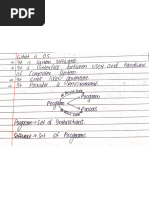 What is OS.
→ It is System Software.
→ It is Interface between User and Hardware
of Computer System
→ It act like governor.
→ It Provide a Environment.
Program
Program
Process
Program → Set of Instructions
Software → Set of Programs